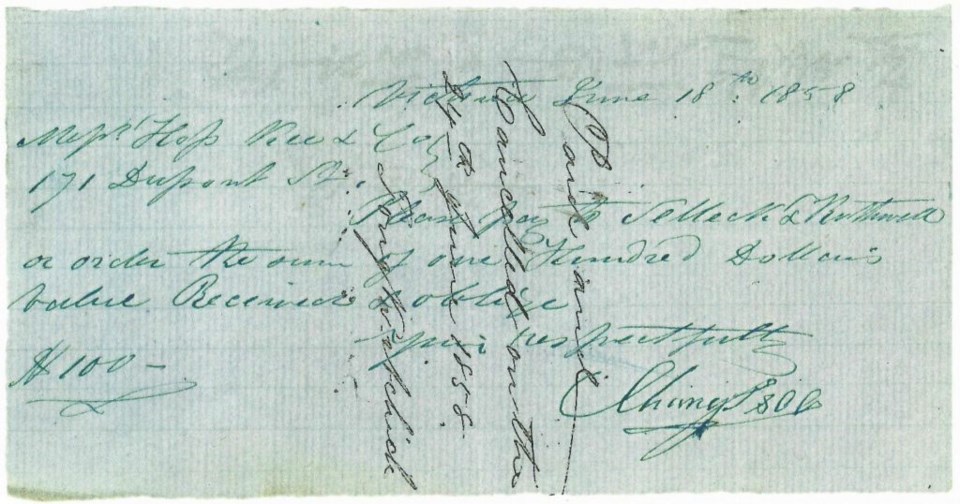 Victoria June 18th 1858
Messrs Hop Kee & Co
171 Dupont St.
Please pay to Selleck & Rothwell
or order the sum of one Hundred Dollars
Value Received & oblige
your respectfully
$100 -
Chiney
Paid and
Cancelled on the
24th June 1858.